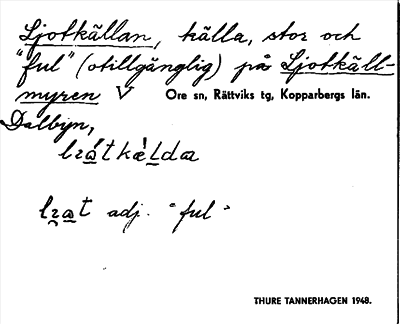 Ljotkällan, källa, stor och
"ful" (otillgänglig) på Ljotkäll-
myren V Ore sn, Rättviks tg, Kopparbergs län.
Dalbyn,
adj. "ful"
THURE TANNERHAGEN 1948.